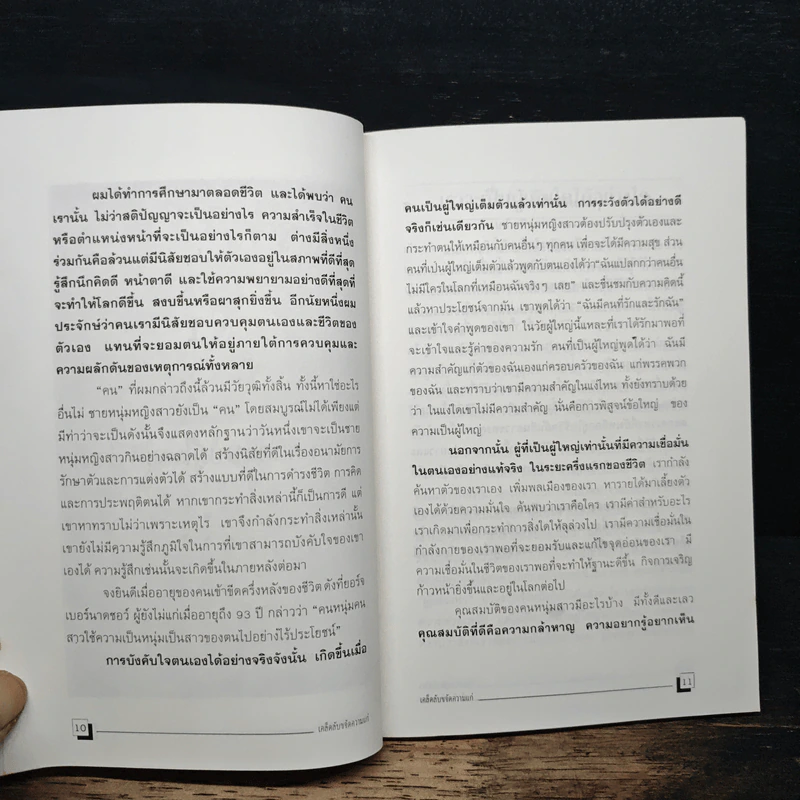 ผมได้ทำการศึกษามาตลอดชีวิต และได้พบว่า คน
เรานั้น ไม่ว่าสติปัญญาจะเป็นอย่างไร ความสำเร็จในชีวิต
หรือตำแหน่งหน้าที่จะเป็นอย่างไรก็ตาม ต่างมีสิ่งหนึ่ง
ร่วมกันคือล้วนแต่มีนิสัยชอบให้ตัวเองอยู่ในสภาพที่ดีที่สุด
รู้สึกนึกคิดดี หน้าตาดี และใช้ความพยายามอย่างดีที่สุดที่
จะทำให้โลกดีขึ้น สงบขึ้นหรือผาสุกยิ่งขึ้น อีกนัยหนึ่งผม
ประจักษ์ว่าคนเรามีนิสัยชอบควบคุมตนเองและชีวิตของ
ตัวเอง แทนที่จะยอมตนให้อยู่ภายใต้การควบคุมและ
ความผลักดันของเหตุการณ์ทั้งหลาย
"คน" ที่ผมกล่าวถึงนี้ล้วนมีวัยวุฒิทั้งสิ้น ทั้งนี้หาใช่อะไร
อื่นไม่ ชายหนุ่มหญิงสาวยังเป็น "คน" โดยสมบูรณ์ไม่ได้เพียงแต่
มีท่าว่าจะเป็นดังนั้นจึงแสดงหลักฐานว่าวันหนึ่งเขาจะเป็นชาย
หนุ่มหญิงสาวกินอย่างฉลาดได้ สร้างนิสัยที่ดีในเรื่องอนามัยการ
รักษาตัวและการแต่งตัวได้ สร้างแบบที่ดีในการดำรงชีวิต การคิด
และการประพฤติตนได้ หากเขากระทำสิ่งเหล่านี้ก็เป็นการดี แต่
เขาหาทราบไม่ว่าเพราะเหตุไร เขาจึงกำลังกระทำสิ่งเหล่านั้น
เขายังไม่มีความรู้สึกภูมิใจในการที่เขาสามารถบังคับใจของเขา
เองได้ ความรู้สึกเช่นนั้นจะเกิดขึ้นในภายหลังต่อมา
จงยินดีเมื่ออายุของคนเข้าขีดครึ่งหลังของชีวิต ดังที่ยอร์จ
เบอร์นาดชอว์ ผู้ยังไม่แก่เมื่ออายุถึง 93 ปี กล่าวว่า "คนหนุ่มคน
สาวใช้ความเป็นหนุ่มเป็นสาวของตนไปอย่างไร้ประโยชน์"
การบังคับใจตนเองได้อย่างจริงจังนั้น เกิดขึ้นเมื่อ
10
เคล็ดลับขจัดความแก่
คนเป็นผู้ใหญ่เต็มตัวแล้วเท่านั้น การระวังตัวได้อย่างดี
จริงก็เช่นเดียวกัน ชายหนุ่มหญิงสาวต้องปรับปรุงตัวเองและ
กระทำตนให้เหมือนกับคนอื่นๆ ทุกคน เพื่อจะได้มีความสุข ส่วน
คนที่เป็นผู้ใหญ่เต็มตัวแล้วพูดกับตนเองได้ว่า "ฉันแปลกกว่าคนอื่น
ไม่มีใครในโลกที่เหมือนฉันจริงๆ เลย" และชื่นชมกับความคิดนี้
แล้วหาประโยชน์จากมัน เขาพูดได้ว่า "ฉันมีคนที่รักและรักฉัน"
และเข้าใจคำพูดของเขา ในวัยผู้ใหญ่นี้แหละที่เราได้รักมาพอที่
จะเข้าใจและรู้ค่าของความรัก คนที่เป็นผู้ใหญ่พูดได้ว่า ฉันมี
ความสำคัญแก่ตัวของฉันเองแก่ครอบครัวของฉัน แก่พรรคพวก
ของฉัน และทราบว่าเขามีความสำคัญในแง่ไหน ทั้งยังทราบด้วย
ว่า ในแง่ใดเขาไม่มีความสำคัญ นั่นคือการพิสูจน์ข้อใหญ่ ของ
ความเป็นผู้ใหญ่
นอกจากนั้น ผู้ที่เป็นผู้ใหญ่เท่านั้นที่มีความเชื่อมั่น
ในตนเองอย่างแท้จริง ในระยะครึ่งแรกของชีวิต เรากำลัง
ค้นหาตัวของเราเอง เพิ่มพลเมืองของเรา หารายได้มาเลี้ยงตัว
เองได้ด้วยความมั่นใจ ค้นพบว่าเราคือใคร เรามีค่าสำหรับอะไร
เราเกิดมาเพื่อกระทำการสิ่งใดให้ลุล่วงไป เรามีความเชื่อมั่นใน
กำลังกายของเราพอที่จะยอมรับและแก้ไขจุดอ่อนของเรา มี
ความเชื่อมั่นในชีวิตของเราพอที่จะทำให้ฐานะดีขึ้น กิจการเจริญ
ก้าวหน้ายิ่งขึ้นและอยู่ในโลกต่อไป
คุณสมบัติของคนหนุ่มสาวมีอะไรบ้าง มีทั้งดีและเลว
คุณสมบัติที่ดีคือความกล้าหาญ ความอยากรู้อยากเห็น
เคล็ดลับขจัดความแก่
11